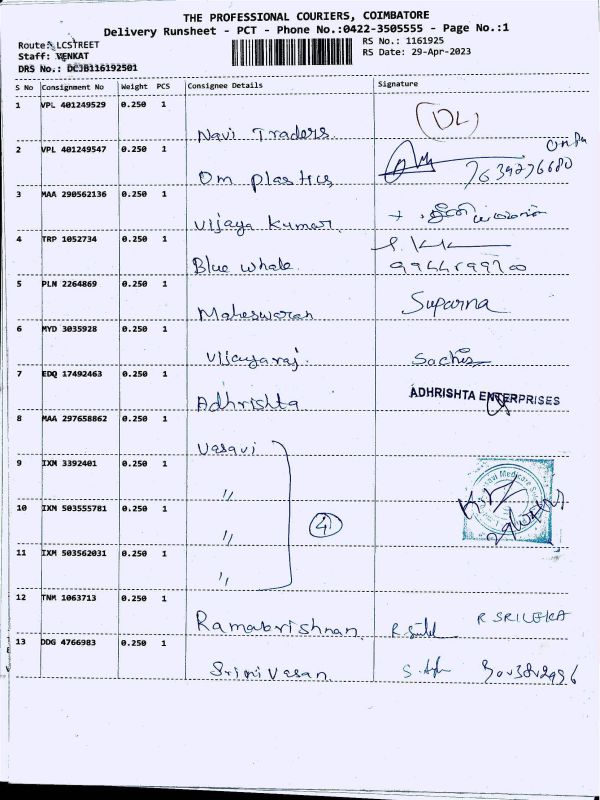 THE PROFESSIONAL COURIERS, COIMBATORE
Delivery Runsheet - PCT - Phone No.:0422-3505555 - Page No.:1
Route: LCSTREET
RS No.: 1161925
Staff: VENKAT
RS Date: 29-Apr-2023
DRS No.: DCJB116192501
S No Consignment No Weight PCS Consignee Details Signature
1 VPL 401249529 0.250 1 Navi Traders (DL)
2 VPL 401249547 0.250 1 Om plastics
3 MAA 290562136 0.250 1 Vijaya Kumar
4 TRP 1052734 0.250 1 Blue whale
5 PLN 2264869 0.250 1 Maheswaran Suparna
6 MYD 3035928 0.250 1 Vijayaraj
7 EDQ 17492463 0.250 1 Adhrishta ADHRISHTA ENTERPRISES
8 MAA 297658862 0.250 1 Vasavi
9 IXM 3392401 0.250 1 "
10 IXN 503555781 0.250 1 " 4
11 IXM 503562031 0.250 1 "
12 TNM 1063713 0.250 1 Ramakrishnan R SRILEKA
13 DDG 4766983 0.250 1 Srinivasan